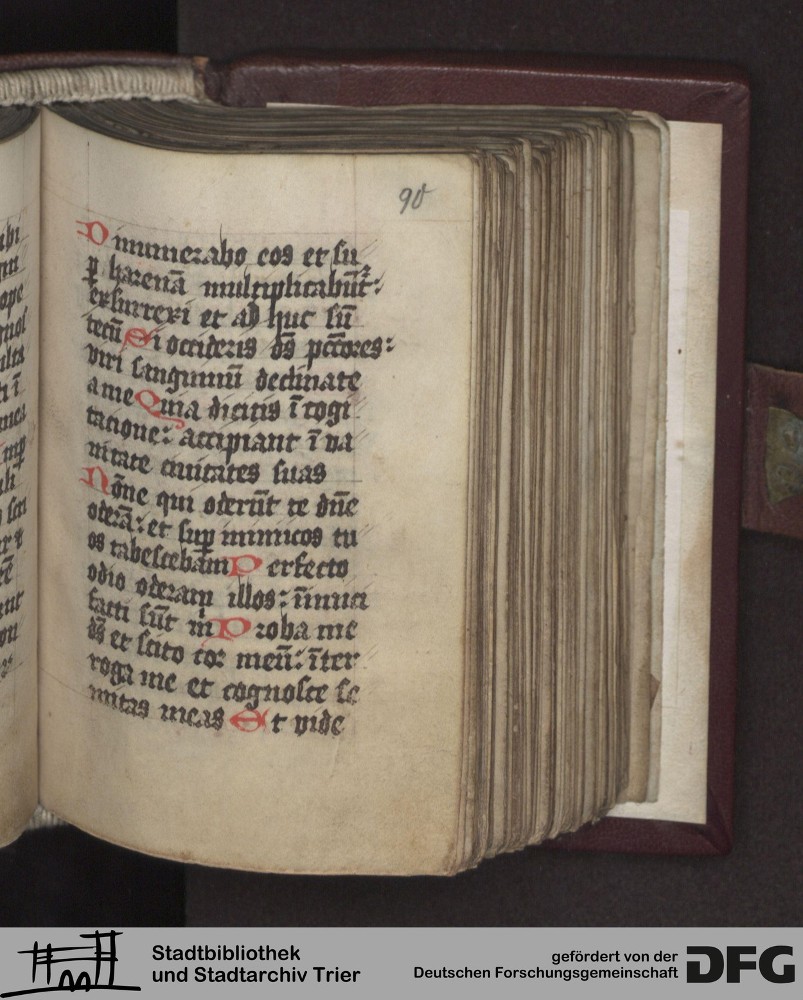 90
Dinumerabo eos et su
ꝑ harenā multiplicabūt᷑:
exsurrexi et adhuc sū
tecū Si occideris ds̄ pctōres:
viri sanguinū declinate
a me Quia dicitis ī cogi
tatione: accipiant ī va
nitate civitates suas
Nōne qui oderūt te dn̄e
oderā: et suꝑ inimicos tu
os tabescebam Perfecto
odio oderam illos: inimici
facti sūt m̄ Proba me
ds̄ et scito cor meū: īter
roga me et cognosce se
mitas meas Et vide
Stadtbibliothek
und Stadtarchiv Trier
gefördert von der
Deutschen Forschungsgemeinschaft
DFG